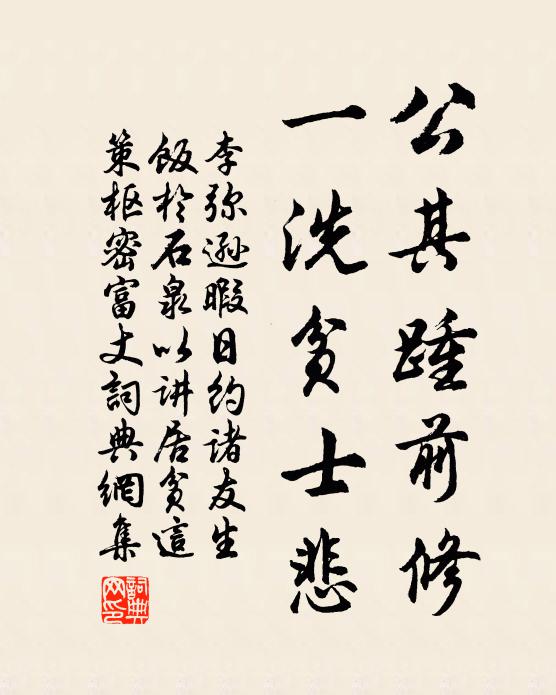 公其踵前修
一洗贫士悲
李弥逊暇日约诸友生
饭於石泉以讲居贫這
策枢密富丈詞典網集
詞典網印